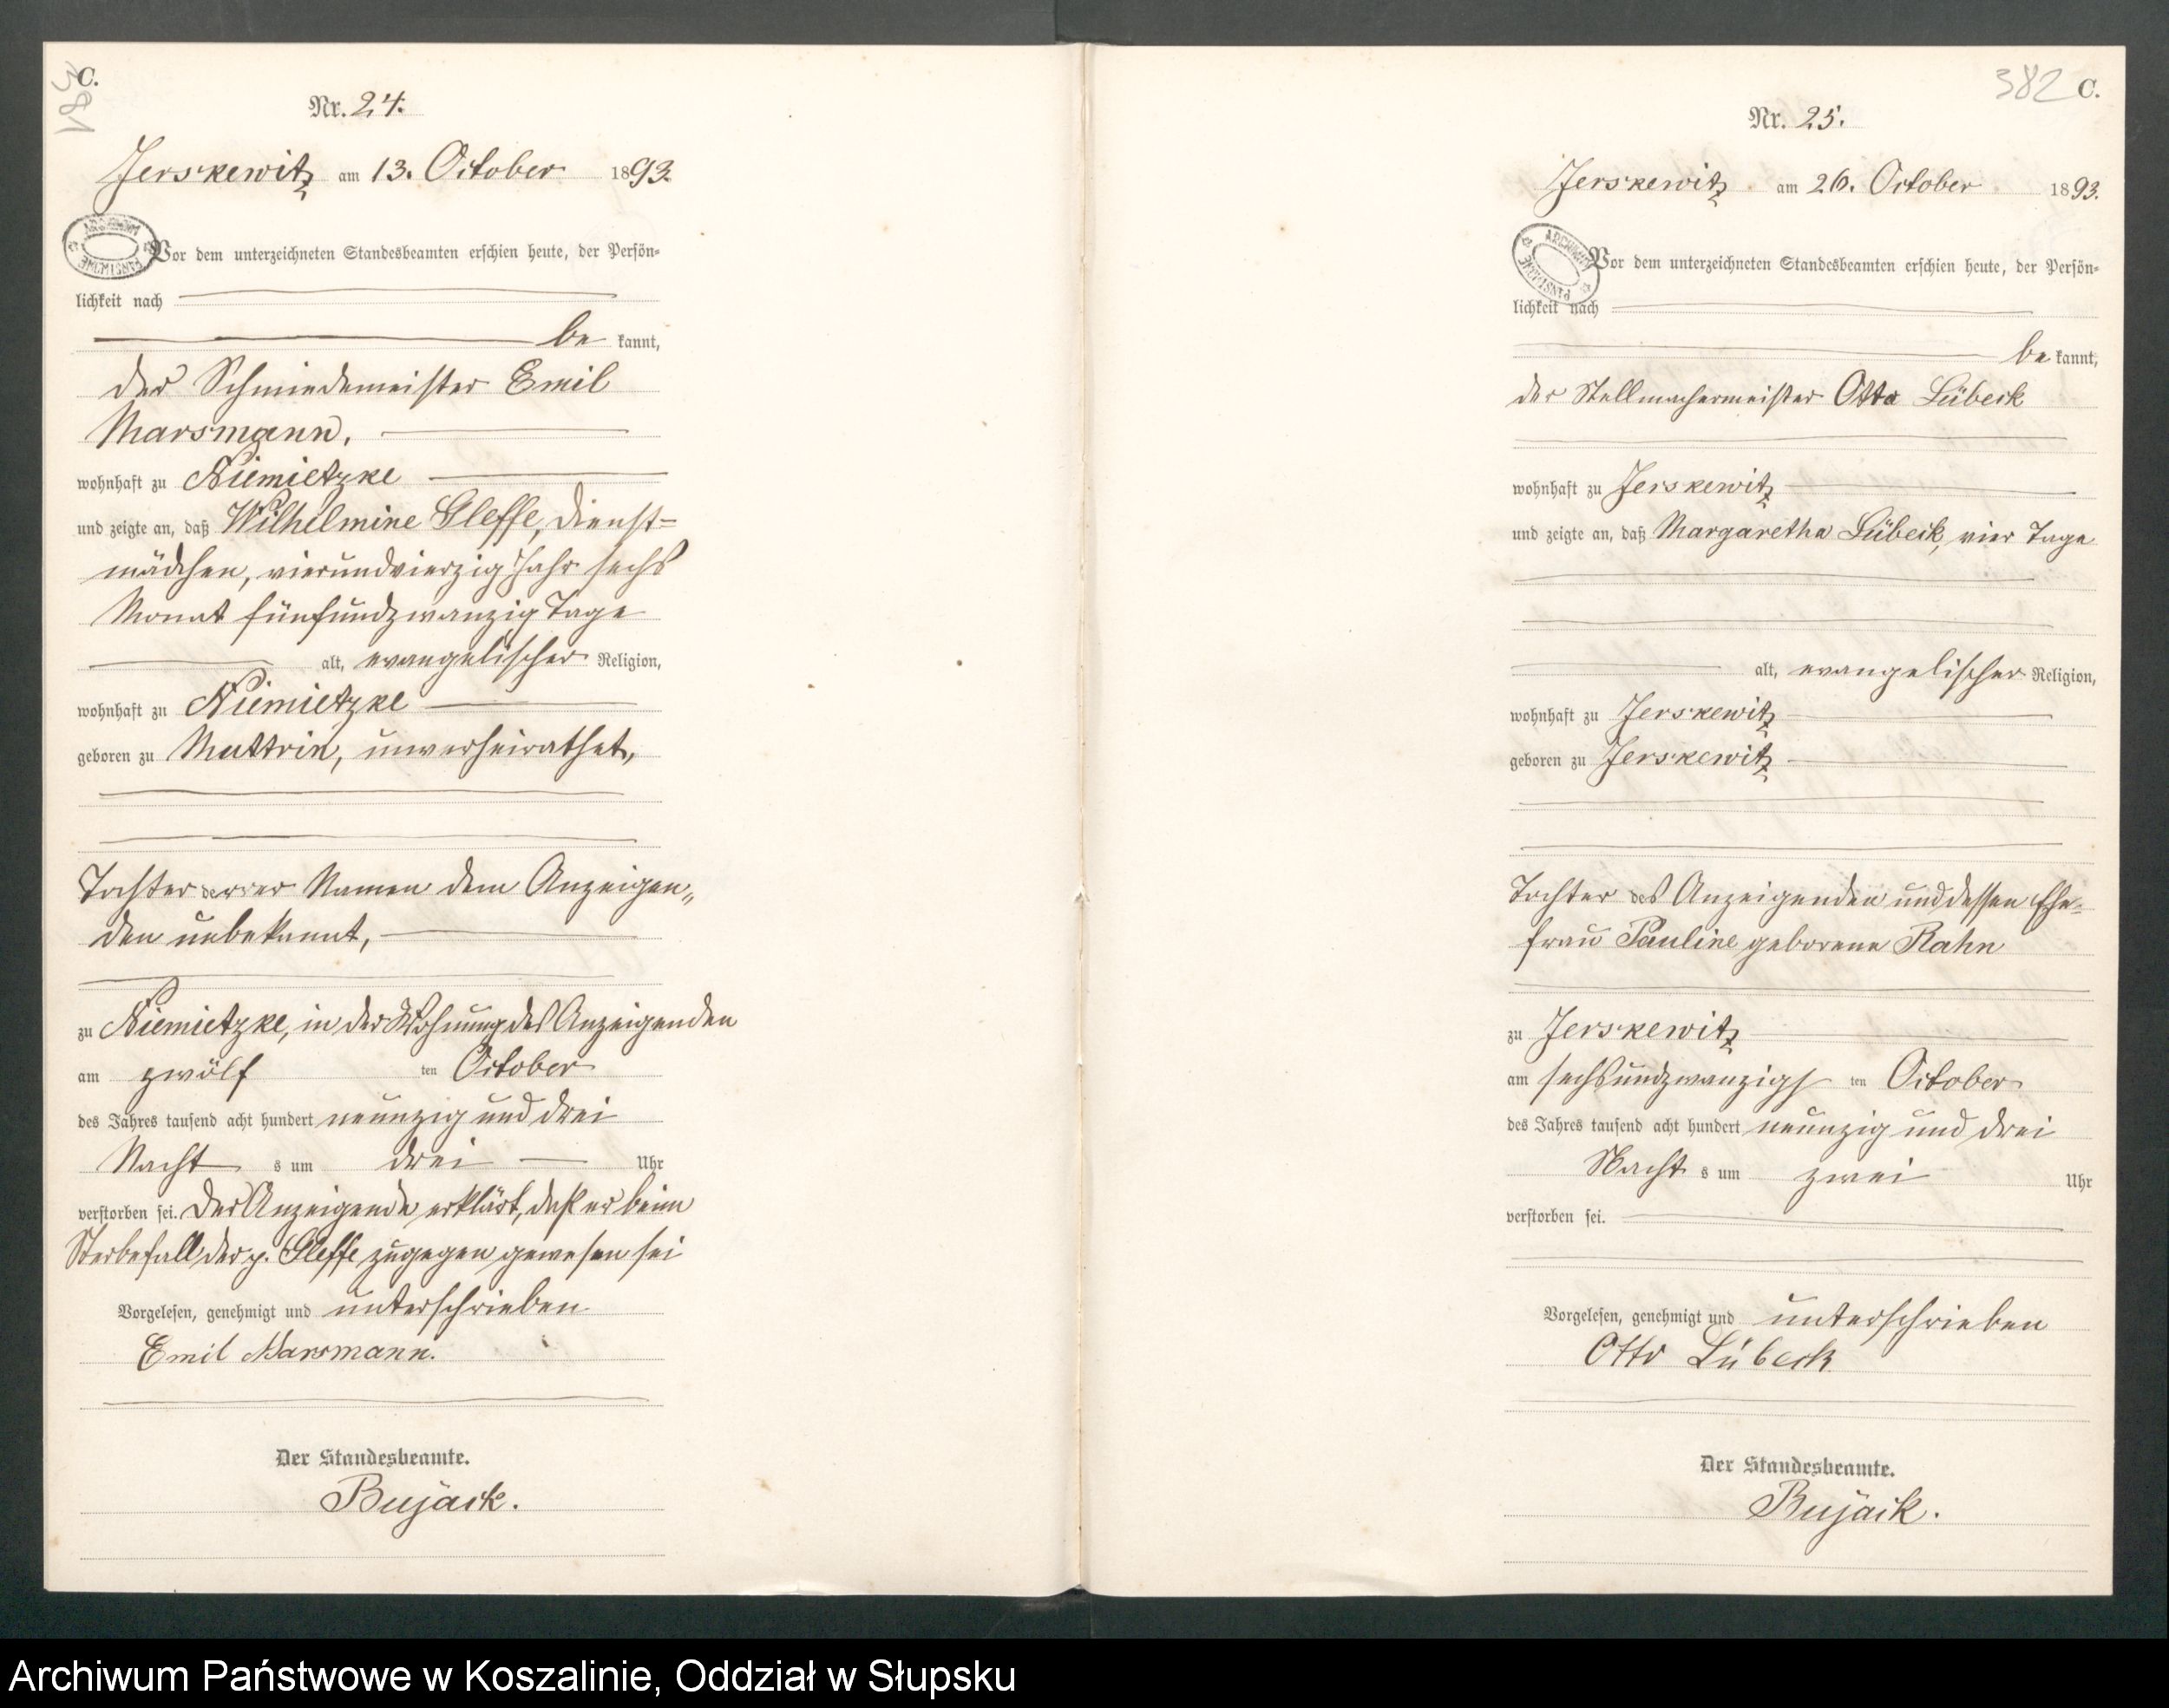 C.
381
Nr. 24.
Jerskewitz am 13. October 1893.
Vor dem unterzeichneten Standesbeamten erschien heute, der Persön-
lichkeit nach
be kannt,
der Schmiedemeister Emil
Marsmann,
wohnhaft zu Niemietzke
und zeigte an, daß Wilhelmine Gleffe, Dienst-
mädchen, vierundvierzig Jahr sechs
Monat fünfundzwanzig Tage
alt, evangelischer Religion,
wohnhaft zu Niemietzke
geboren zu Muttrin, unverheirathet,
Tochter deren Namen dem Anzeigen„
den unbekannt,
zu Niemietzke, in der Wohnung des Anzeigenden
am zwölf ten October
des Jahres tausend acht hundert neunzig und drei
Nacht s um drei Uhr
verstorben sei. Der Anzeigende erklärt, daß er beim
Sterbefall der p. Gleffe zugegen gewesen sei
Vorgelesen, genehmigt und unterschrieben
Emil Marsmann.
Der Standesbeamte.
Bujack.
382 C.
Nr. 25.
Jerskewitz am 26. October 1893.
Vor dem unterzeichneten Standesbeamten erschien heute, der Persön-
lichkeit nach
be kannt,
der Stellmachermeister Otto Lübeck
wohnhaft zu Jerskewitz
und zeigte an, daß Margaretha Lübeck, vier Tage
alt, evangelischer Religion,
wohnhaft zu Jerskewitz
geboren zu Jerskewitz
Tochter des Anzeigenden und dessen Ehe-
frau Pauline geborene Rahn
zu Jerskewitz
am sechsundzwanzigs ten October
des Jahres tausend acht hundert neunzig und drei
Nacht s um zwei Uhr
verstorben sei.
Vorgelesen, genehmigt und unterschrieben
Otto Lübeck
Der Standesbeamte.
Bujack.
Archiwum Państwowe w Koszalinie, Oddział w Słupsku